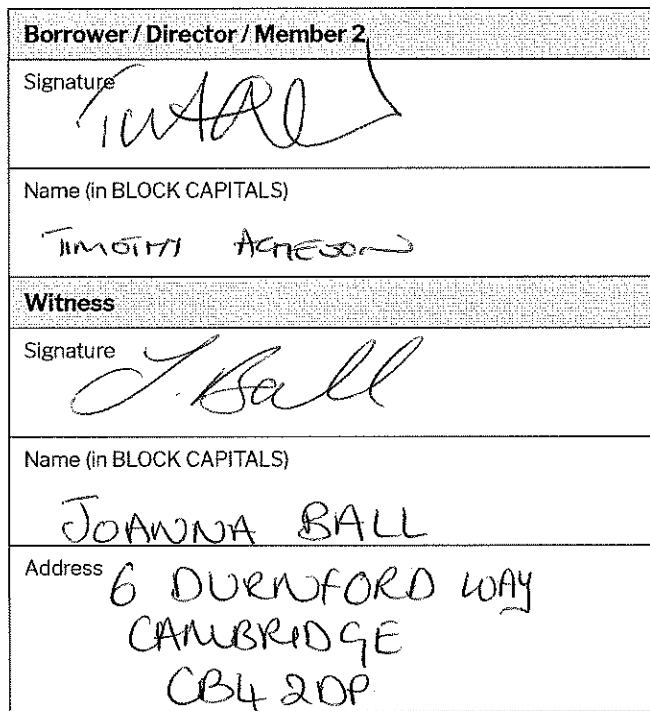 Borrower / Director / Member 2
Signature
Name (in BLOCK CAPITALS)
TIMOTHY ACHESON
Witness
Signature
J. Ball
Name (in BLOCK CAPITALS)
JOANNA BALL
Address 6 DURNFORD WAY
CAMBRIDGE
CB4 2DP